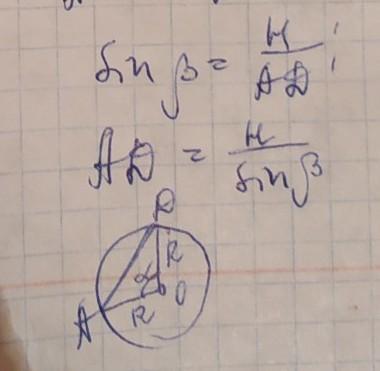 sin β = H / AD ;
AD = H / sin β
D
R
α
O
R
A